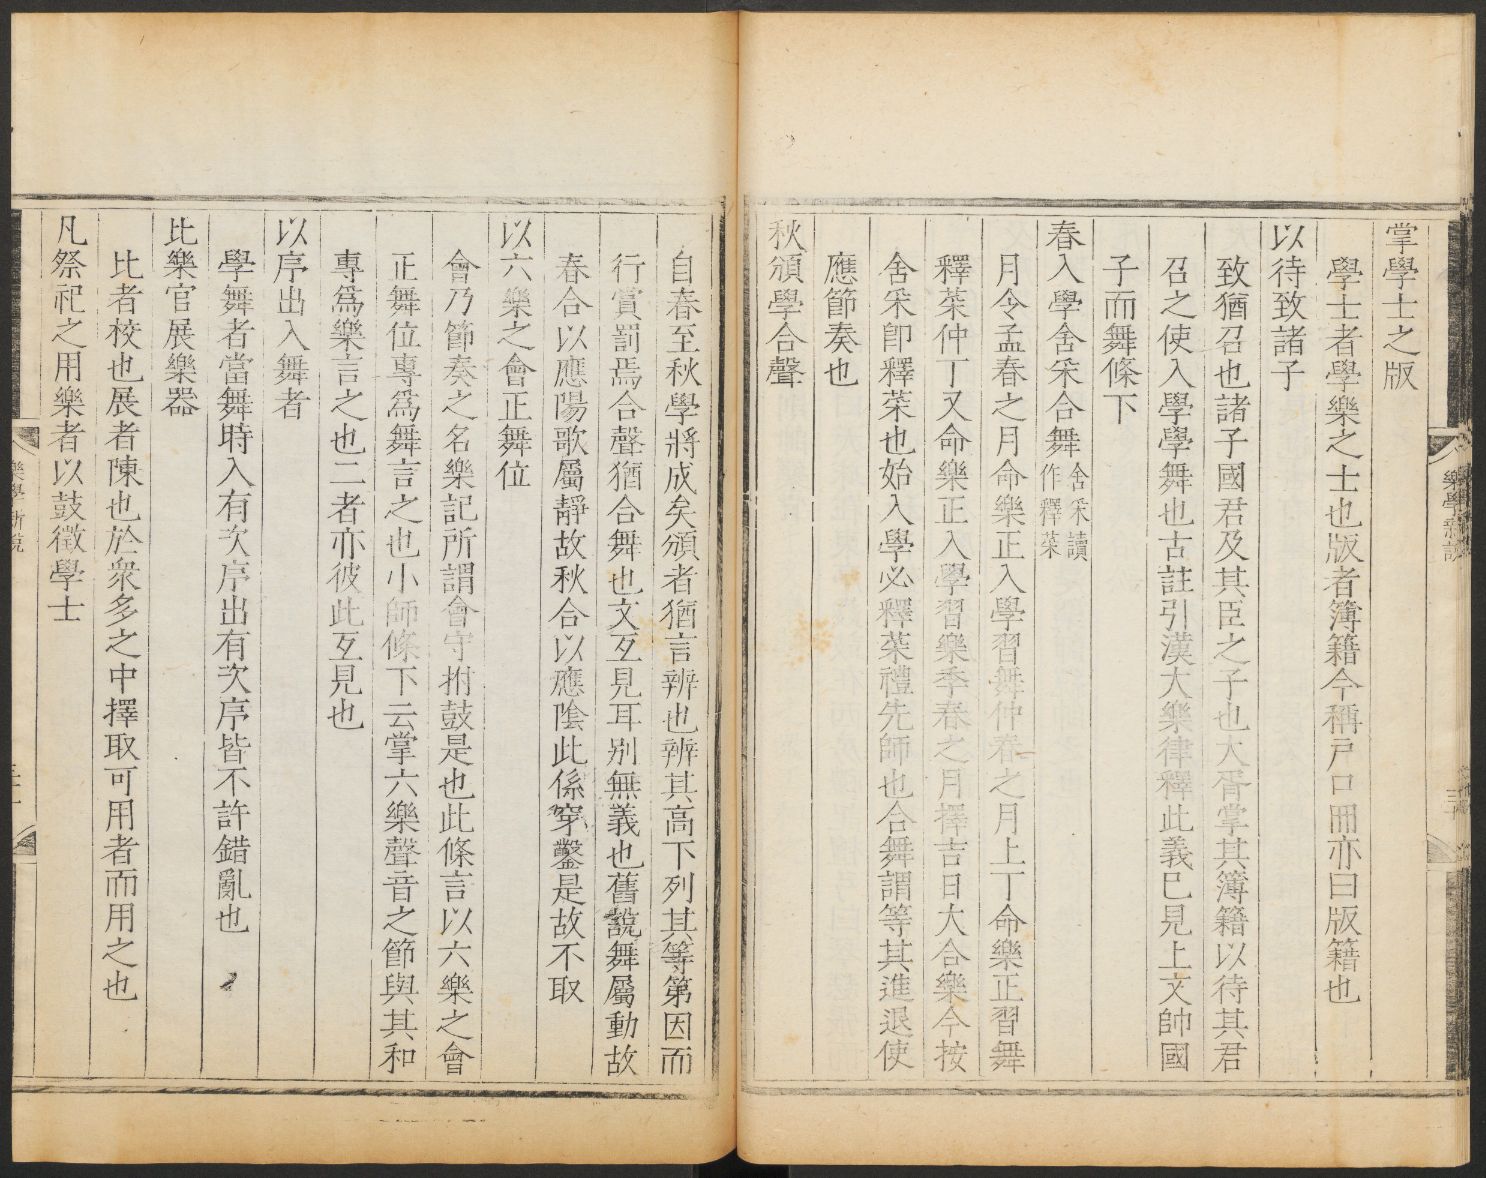 掌學士之版
學士者學樂之士也版者簿籍今稱戸口冊亦曰版籍也
以待致諸子
致猶召也諸子國君及其臣之子也大胥掌其簿籍以待其君
召之使入學學舞也古註引漢大樂律釋此義已見上文帥國
子而舞條下
春入學舍采合舞舍采讀作釋菜
月令孟春之月命樂正入學習舞仲春之月上丁命樂正習舞
釋菜仲丁又命樂正入學習樂季春之月擇吉日大合樂今按
舍采卽釋菜也始入學必釋菜禮先師也合舞謂等其進退使
應節奏也
秋頒學合聲
自春至秋學將成矣頒者猶言辨也辨其高下列其等第因而
行賞罰焉合聲猶合舞也文互見耳别無義也舊說舞屬動故
春合以應陽歌屬靜故秋合以應陰此係穿鑿是故不取
以六樂之會正舞位
會乃節奏之名樂記所謂會守拊鼓是也此條言以六樂之會
正舞位專爲舞言之也小師條下云掌六樂聲音之節與其和
專爲樂言之也二者亦彼此互見也
以序出入舞者
學舞者當舞時入有次序出有次序皆不許錯亂也
比樂官展樂器
比者校也展者陳也於衆多之中擇取可用者而用之也
凡祭祀之用樂者以鼓徵學士